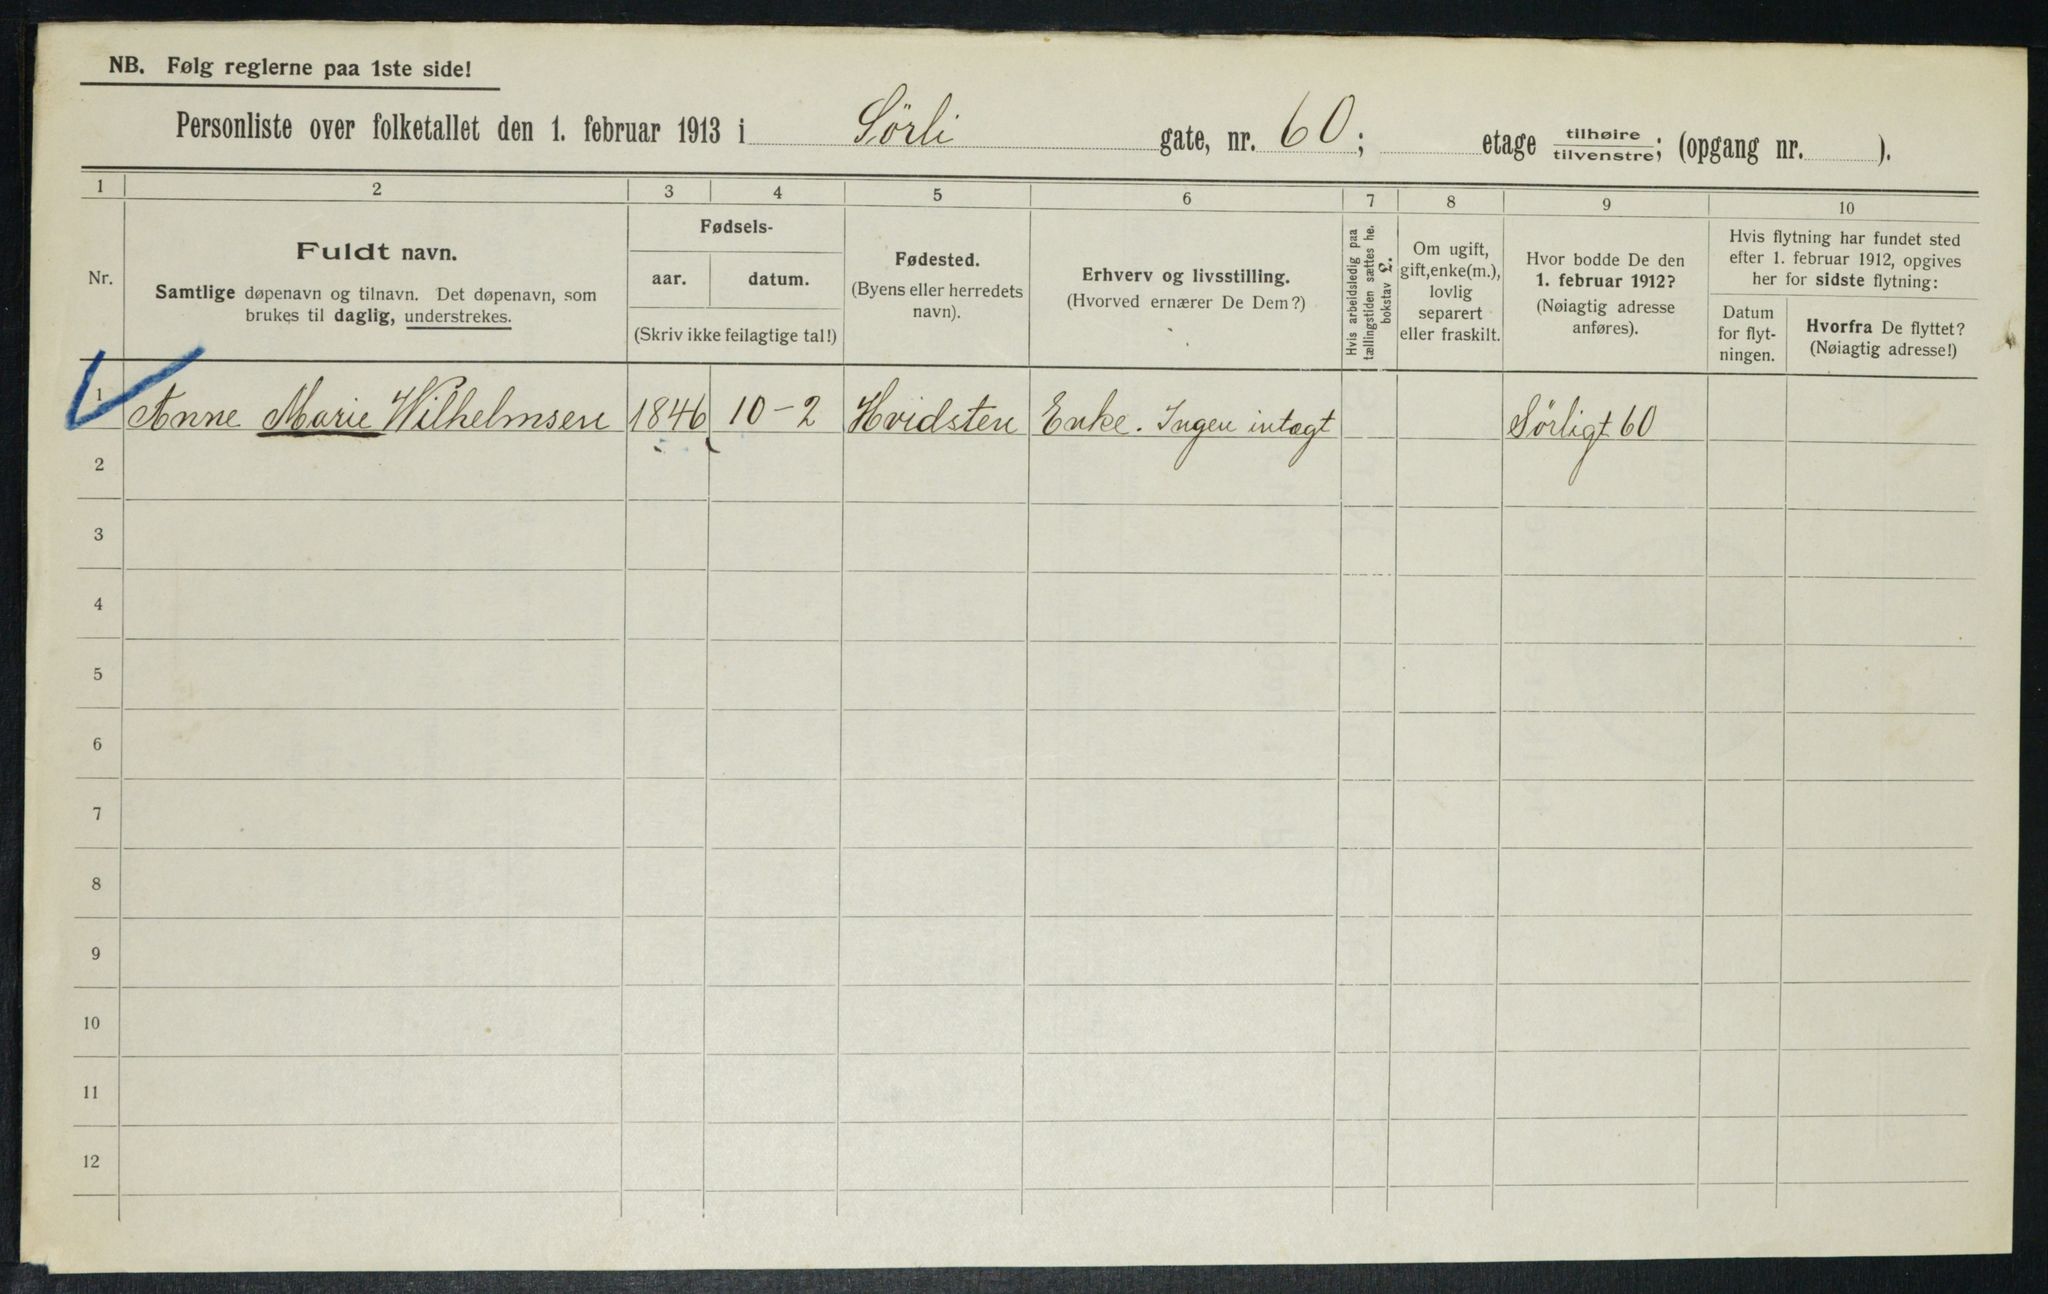 NB. Følg reglerne paa 1ste side!
Personliste over folketallet den 1. februar 1913 i Sørli gate, nr. 60; etage tilhøire/tilvenstre; (opgang nr. ).
1 2 3 4 5 6 7 8 9 10
Nr.
Fuldt navn.
Samtlige døpenavn og tilnavn. Det døpenavn, som
brukes til daglig, understrekes.
Fødsels-
aar. datum.
(Skriv ikke feilagtige tal!)
Fødested.
(Byens eller herredets
navn).
Erhverv og livsstilling.
(Hvorved ernærer De Dem?)
Hvis arbeidsledig paa
tællingstiden sættes he.
bokstav £.
Om ugift,
gift, enke(m.),
lovlig
separert
eller fraskilt.
Hvor bodde De den
1. februar 1912?
(Nøiagtig adresse
anføres).
Hvis flytning har fundet sted
efter 1. februar 1912, opgives
her for sidste flytning:
Datum
for flyt-
ningen.
Hvorfra De flyttet?
(Nøiagtig adresse!)
1 Anne Marie Wilhelmsen 1846 10-2 Hvidsten Enke. Ingen intægt Sørligt 60
2
3
4
5
6
7
8
9
10
11
12